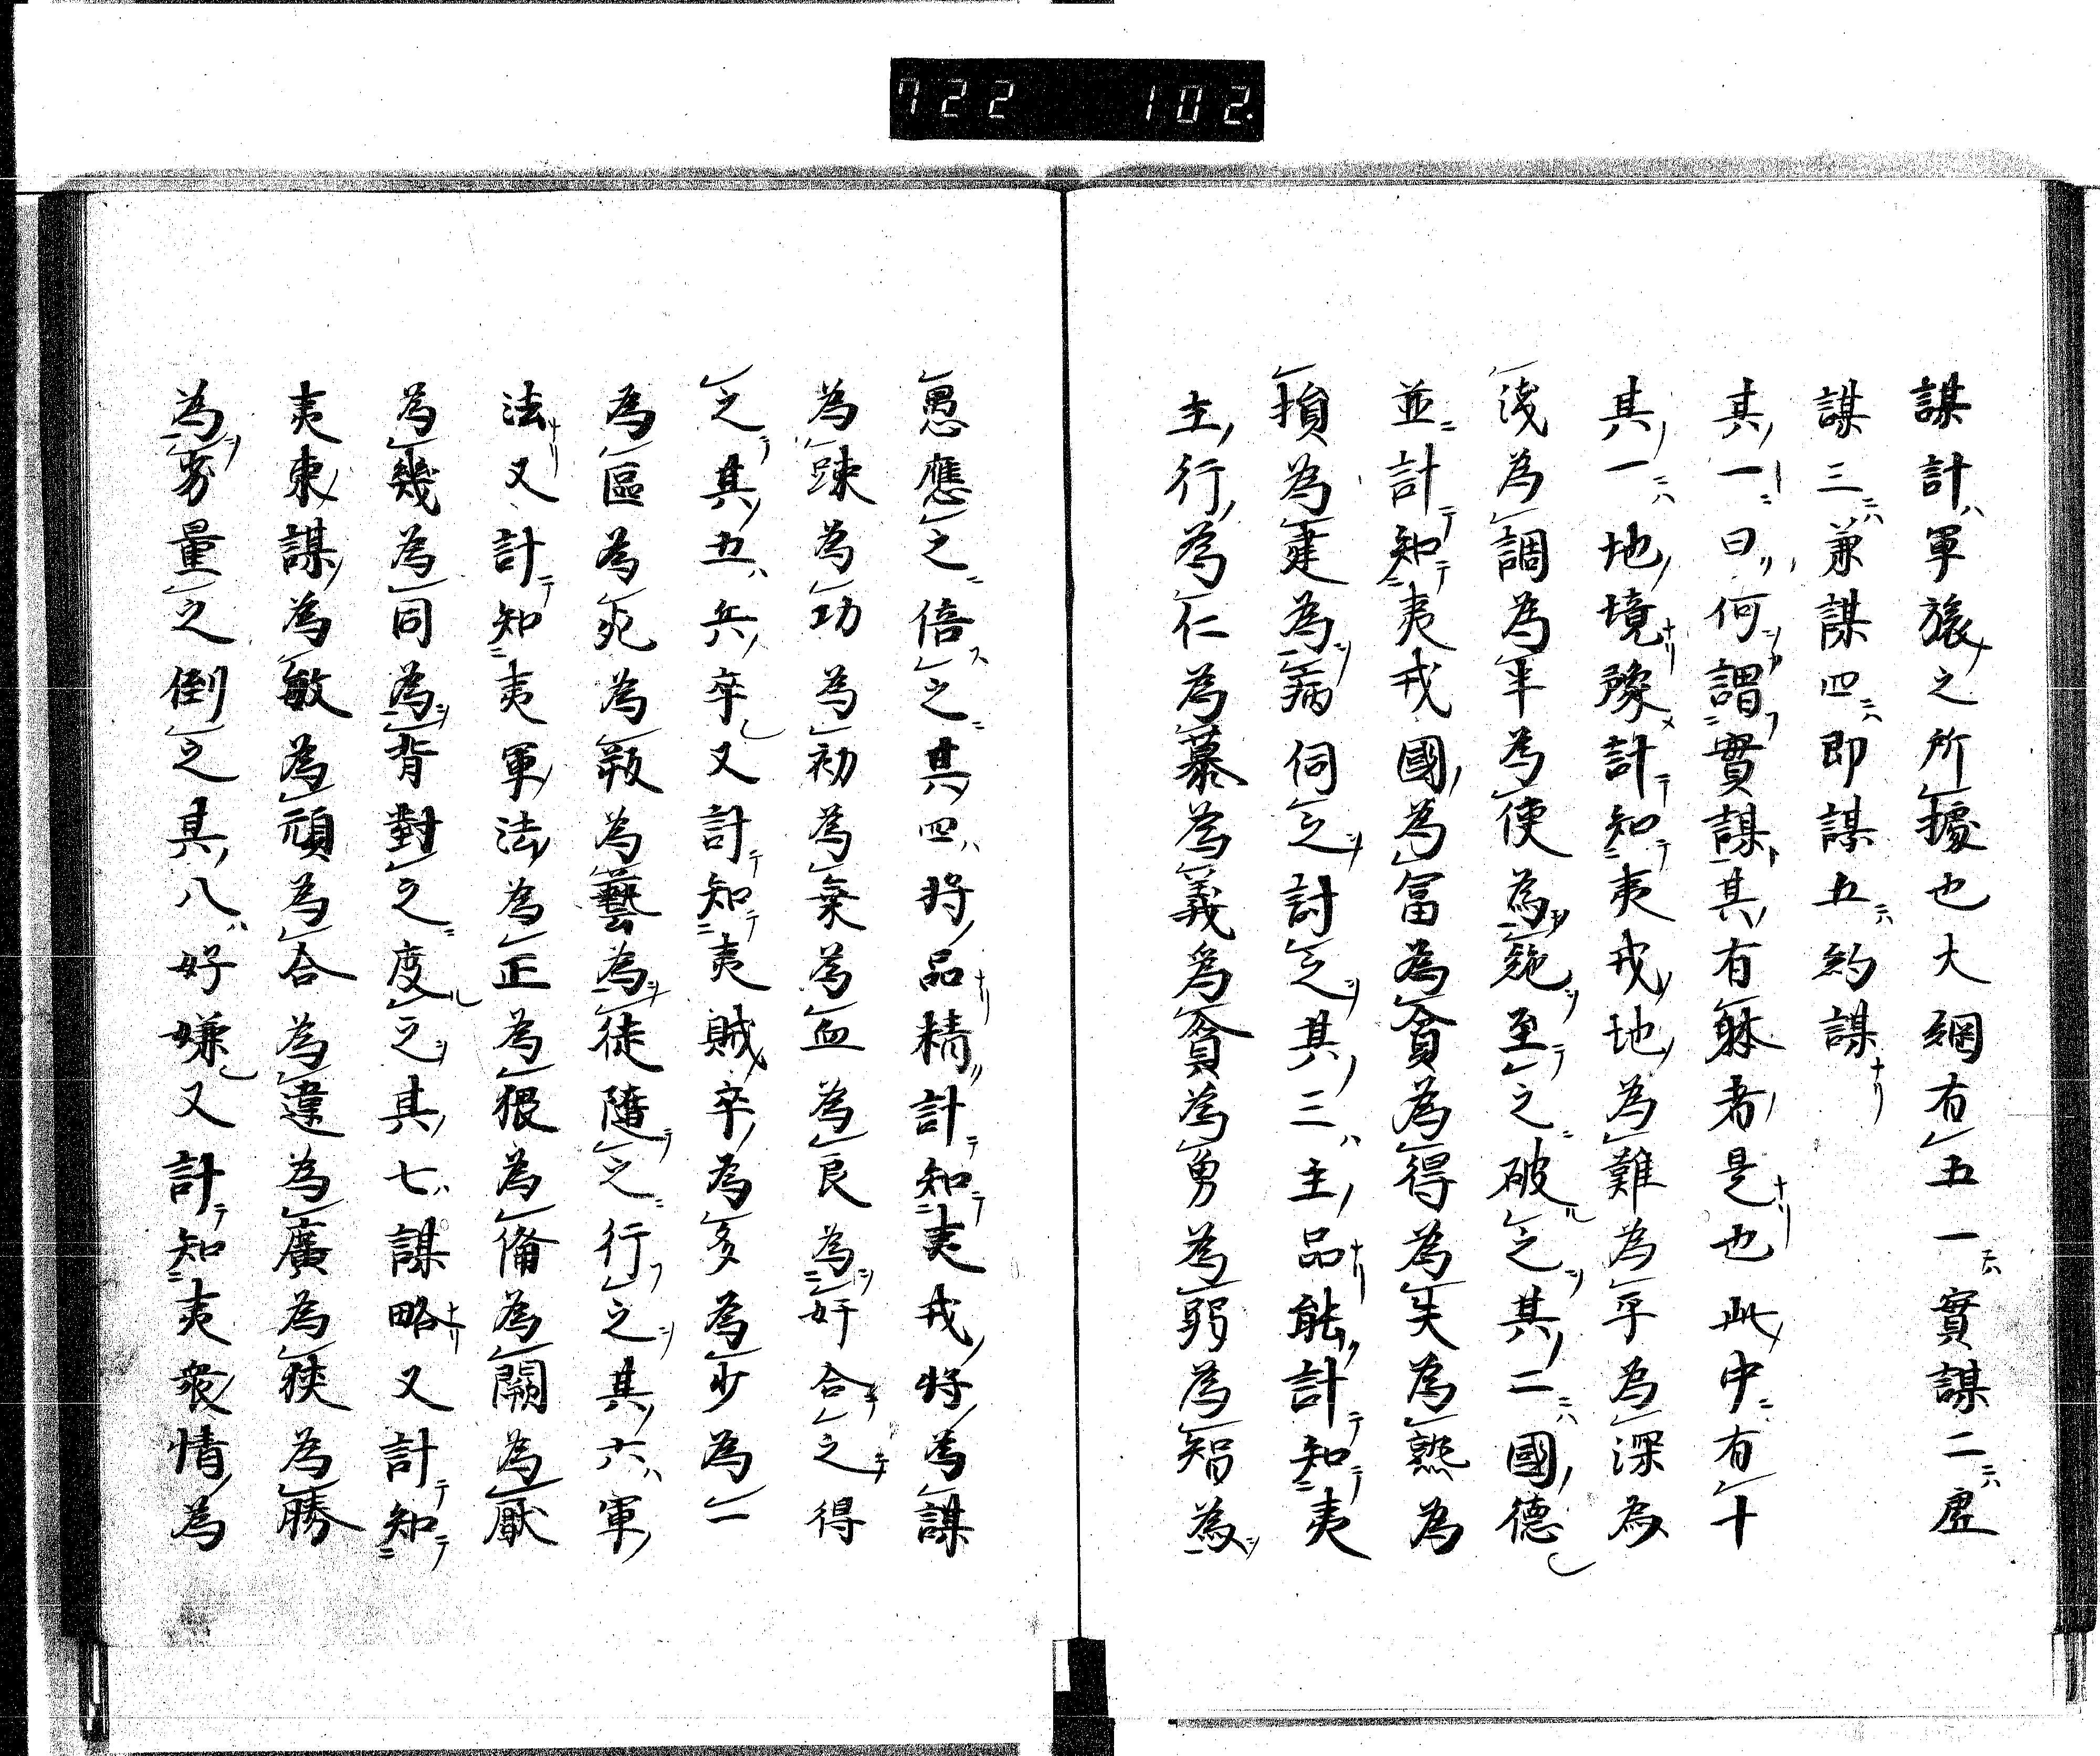 722 102.
謀計軍旅之所據也大綱有五一實謀二虛
謀三兼謀四即謀五約謀
其一曰何謂實謀其有躰者是也此中有十
其一地境豫計知夷戎地為難為平為深為
淺為調為半為使為施至之破之其二國德
並計知夷戎國為富為貧為得為失為熟為
損為建為病伺之討之其三主品能計知夷
主行為仁為慕為義為貪為勇為弱為智為
愚應之倍之其四將品精計知夷戎將為謀
為踈為功為初為棄為血為良為奸合之得
之其五兵卒又計知夷賊卒為多為少為一
為區為死為叛為藝為徒隨之行之其六軍
法又計知夷軍法為正為狠為備為闕為厭
為幾為同為背對之度之其七謀略又計知
夷東謀為敏為頑為合為違為廣為狹為勝
為劣量之倒之其八好嫌又計知夷衆情為